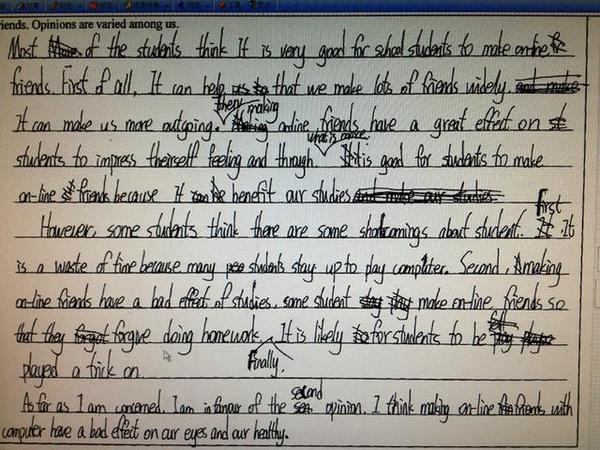 riends. Opinions are varied among us.
Most of the students think It is very good for school students to make on-line
friends. First of all, It can help that we make lots of friends widely.
It can make us more outgoing. then making on-line friends have a great effect on
students to impress theirself feeling and through. what is more It is good for students to make
on-line friends because It can benefit our studies
However, some students think there are some shotcomings about student. first It
is a waste of time because many students stay up to play computer. Second, making
on-line friends have a bad effect of studies. some student make on-line friends so
that they forgive doing homework. It is likely for students to be
played a trick on. Finally.
As far as I am concerned, I am in favour of the second opinion. I think making on-line friends with
computer have a bad effect on our eyes and our healthy.